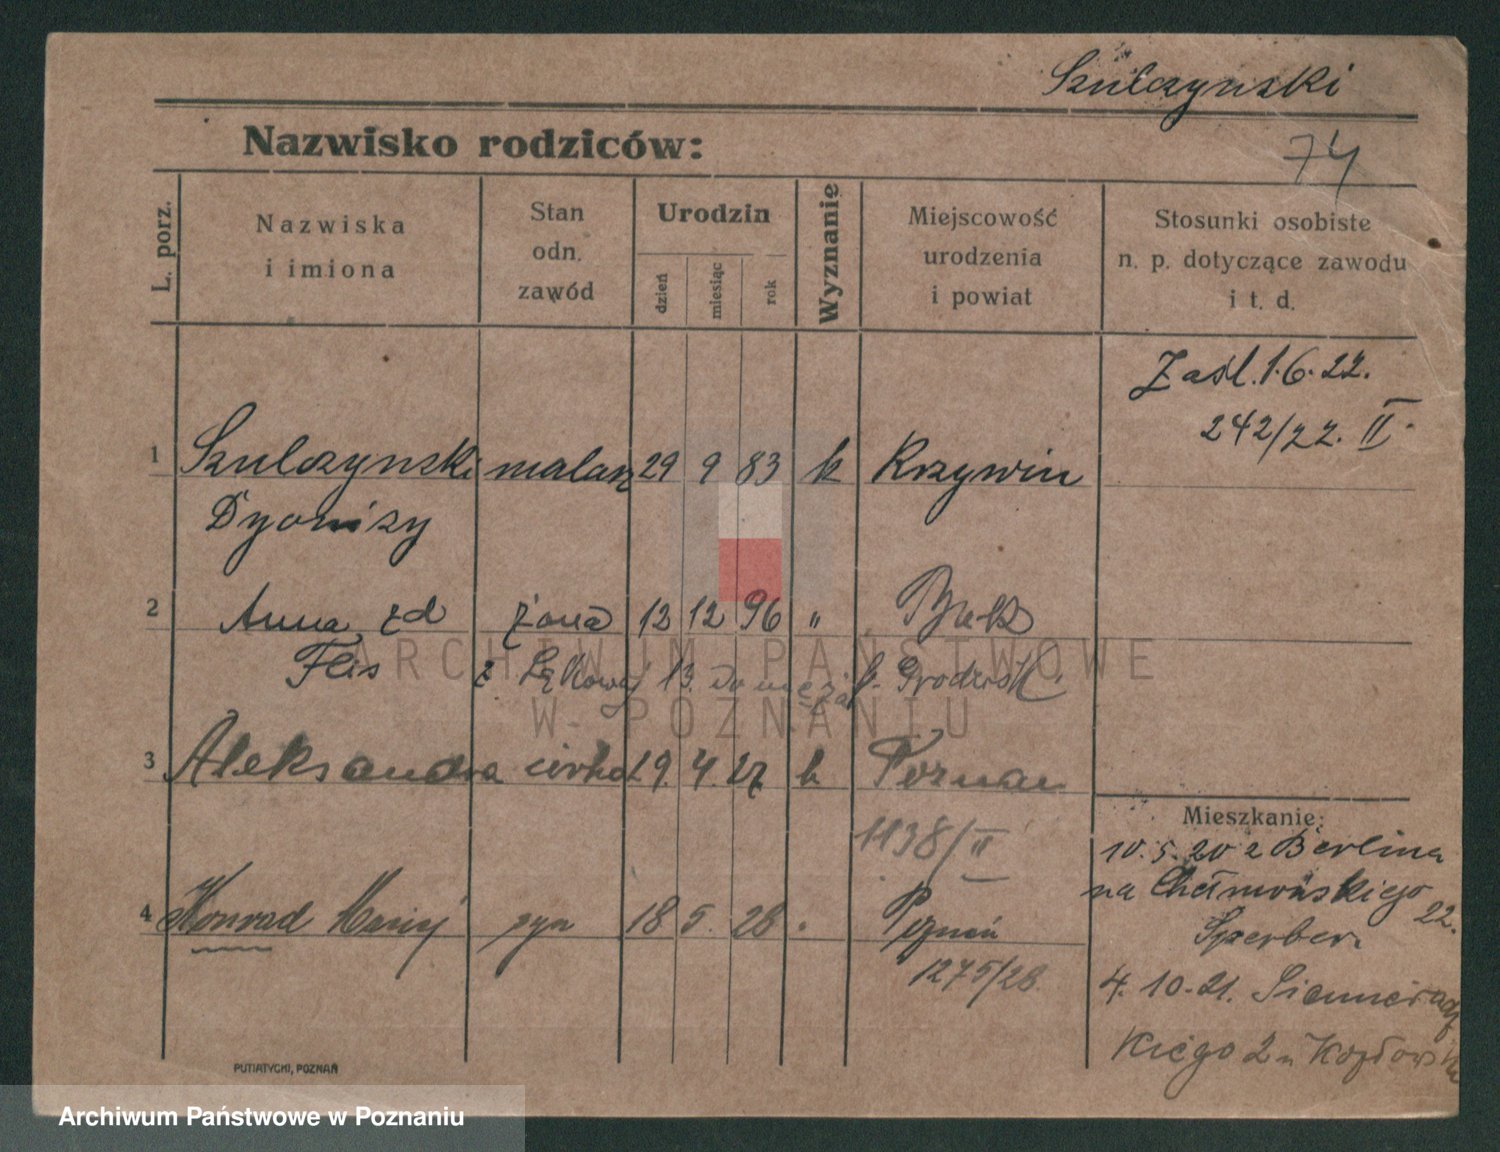 Szulczynski
74
Nazwisko rodziców:
L. porz.
Nazwiska
i imiona
Stan
odn.
zawód
Urodzin
dzień
miesiąc
rok
Wyznanie
Miejscowość
urodzenia
i powiat
Stosunki osobiste
n. p. dotyczące zawodu
i t. d.
Zaśl. 1.6.22.
242/22. II.
1 Szulczynski malarz 29 9 83 k Krzywin
Dyonizy
2 Anna zd żona 12 12 96 "
Flis z 13. do męża p. Grodzisk
3 Aleksandra córka 19. 4. 27 k Poznan
1138/II
4 Konrad syn 18 5. 28 Poznań
1275/28
Mieszkanie:
10.5.20 z Berlina
na Chełmońskiego 22.
Sperber.
4.10.21. Siemieradz
kiego 2 u Kozłowski
PUTIATYCKI, POZNAŃ
ARCHIWUM PAŃSTWOWE
W POZNANIU
Archiwum Państwowe w Poznaniu